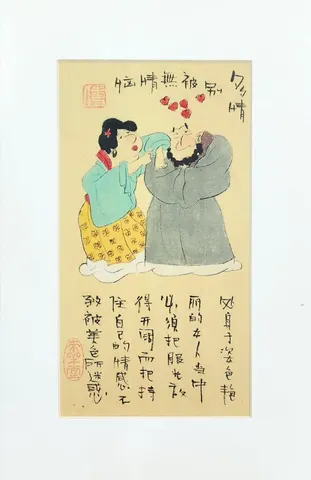 多情
别被無情恼
处身于姿色艳
丽的女人当中
必须把眼光放
得开阔而把持
住自己的情感不
致被美色所迷惑